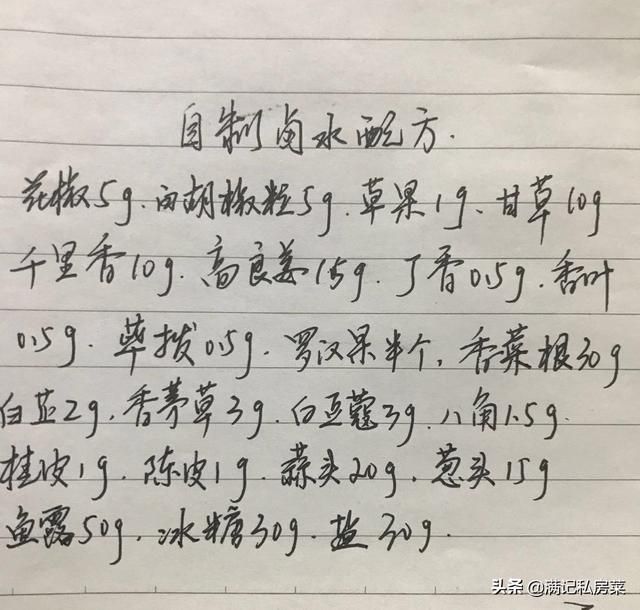 自制卤水配方.
花椒5g.白胡椒粒5g.草果1g、甘草10g
千里香10g.高良姜15g.丁香0.5g.香叶
0.5g.荜拨0.5g.罗汉果半个,香菜根30g
白芷2g,香茅草3g.白豆蔻3g.八角1.5g.
桂皮1g.陈皮1g.蒜头20g.葱头15g
鱼露50g.冰糖30g.盐30g.
头条 @满记私房菜